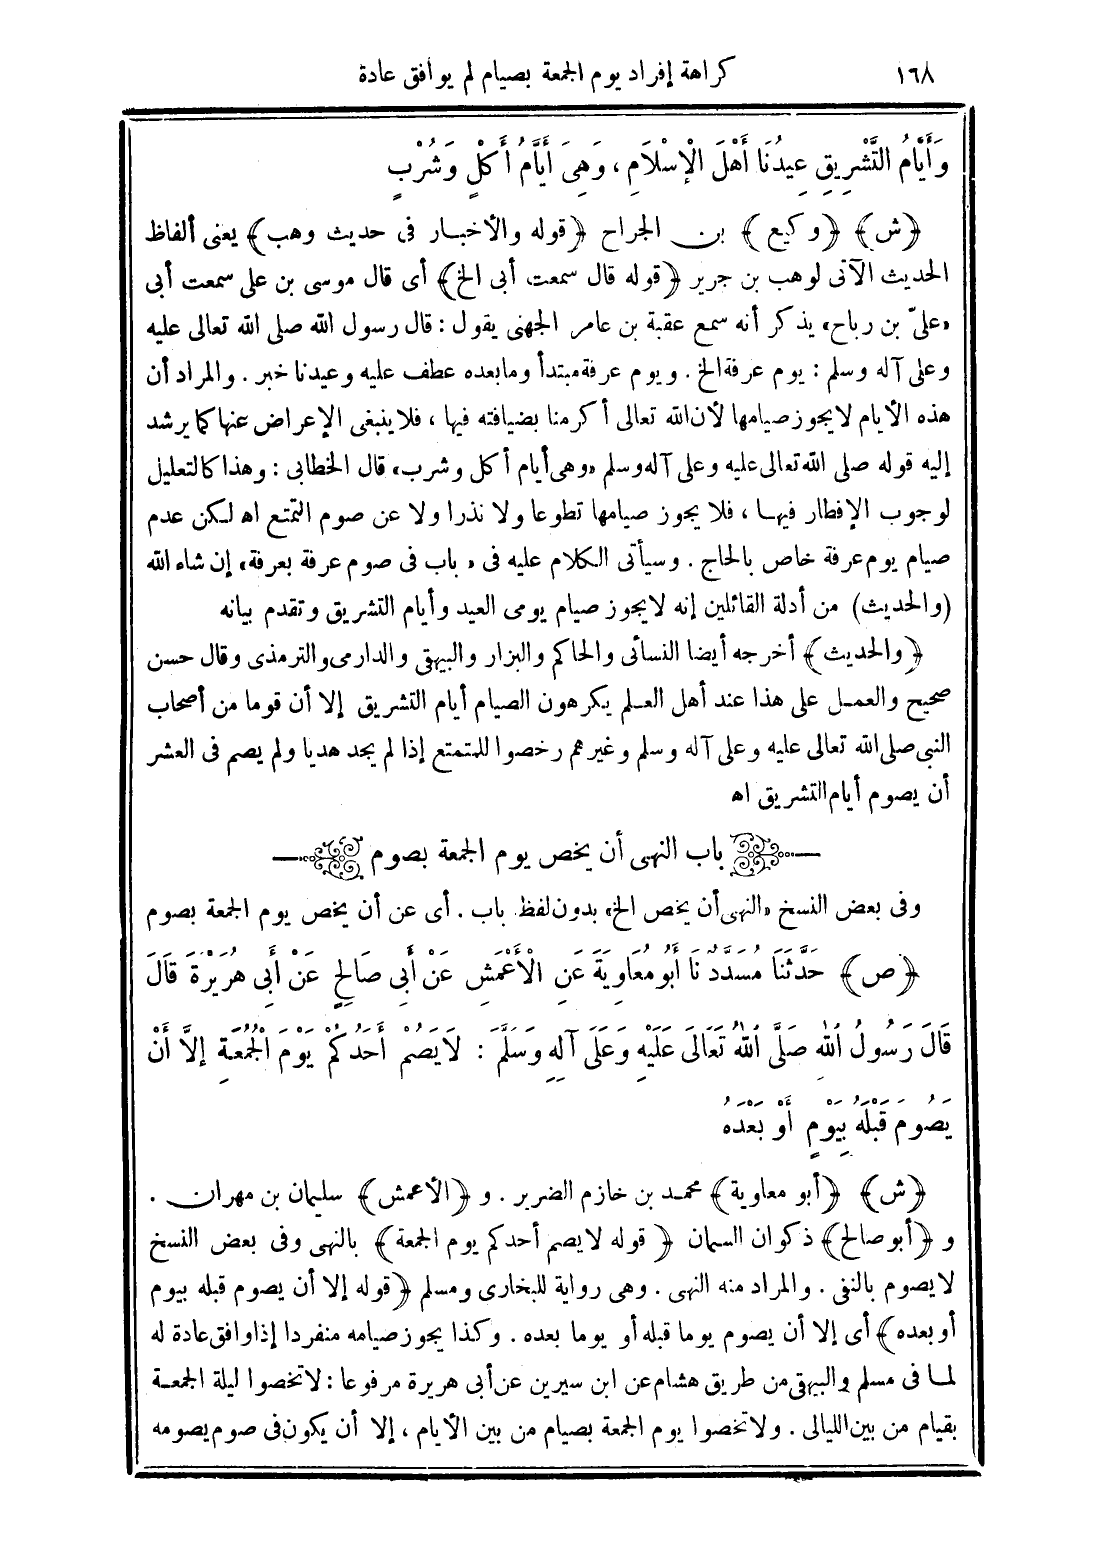 ١٦٨ كراهة إفراد يوم الجمعة بصيام لم يوافق عادة
وَأَيَّامُ التَّشْرِيقِ عِيدُنَا أَهْلَ الْإِسْلَامِ ، وَهِىَ أَيَّامُ أَكْلٍ وَشُرْبٍ
﴿ش﴾ ﴿وكيع﴾ بن الجراح ﴿قوله والأخبار فى حديث وهب﴾ يعنى ألفاظ
الحديث الآتى لوهب بن جرير ﴿قوله قال سمعت أبى الخ﴾ أى قال موسى بن على سمعت أبى
«علىّ بن رباح» يذكر أنه سمع عقبة بن عامر الجهنى يقول : قال رسول الله صلى الله تعالى عليه
وعلى آله وسلم : يوم عرفة الخ . ويوم عرفة مبتدأ وما بعده عطف عليه وعيدنا خبر . والمراد أن
هذه الأيام لا يجوز صيامها لأن الله تعالى أكرمنا بضيافته فيها ، فلا ينبغى الإعراض عنها كما يرشد
إليه قوله صلى الله تعالى عليه وعلى آله وسلم «وهى أيام أكل وشرب» قال الخطابى : وهذا كالتعليل
لوجوب الإفطار فيها ، فلا يجوز صيامها تطوعا ولا نذرا ولا عن صوم التمتع اه لكن عدم
صيام يوم عرفة خاص بالحاج . وسيأتى الكلام عليه فى « باب فى صوم عرفة بعرفة» إن شاء الله
(والحديث) من أدلة القائلين إنه لا يجوز صيام يومى العيد وأيام التشريق وتقدم بيانه
﴿والحديث﴾ أخرجه أيضا النسائى والحاكم والبزار والبيهقى والدارمى والترمذى وقال حسن
صحيح والعمل على هذا عند أهل العلم يكرهون الصيام أيام التشريق إلا أن قوما من أصحاب
النبى صلى الله تعالى عليه وعلى آله وسلم وغيرهم رخصوا للمتمتع إذا لم يجد هديا ولم يصم فى العشر
أن يصوم أيام التشريق اه
باب النهى أن يخص يوم الجمعة بصوم
وفى بعض النسخ «النهى أن يخص الخ» بدون لفظ باب . أى عن أن يخص يوم الجمعة بصوم
﴿ص﴾ حَدَّثَنَا مُسَدَّدٌ نَا أَبُو مُعَاوِيَةَ عَنِ الْأَعْمَشِ عَنْ أَبِى صَالِحٍ عَنْ أَبِى هُرَيْرَةَ قَالَ
قَالَ رَسُولُ اللهِ صَلَّى اللهُ تَعَالَى عَلَيْهِ وَعَلَى آلِهِ وَسَلَّمَ : لَا يَصُمْ أَحَدُكُمْ يَوْمَ الْجُمُعَةِ إِلَّا أَنْ
يَصُومَ قَبْلَهُ بِيَوْمٍ أَوْ بَعْدَهُ
﴿ش﴾ ﴿أبو معاوية﴾ محمد بن خازم الضرير . و ﴿الأعمش﴾ سليمان بن مهران .
و ﴿أبو صالح﴾ ذكوان السمان ﴿ قوله لا يصم أحدكم يوم الجمعة﴾ بالنهى وفى بعض النسخ
لا يصوم بالنفى . والمراد منه النهى . وهى رواية للبخارى ومسلم ﴿قوله إلا أن يصوم قبله بيوم
أو بعده﴾ أى إلا أن يصوم يوما قبله أو يوما بعده . وكذا يجوز صيامه منفردا إذا وافق عادة له
لما فى مسلم والبيهقى من طريق هشام عن ابن سيرين عن أبى هريرة مرفوعا : لا تخصوا ليلة الجمعة
بقيام من بين الليالى . ولا تخصوا يوم الجمعة بصيام من بين الأيام ، إلا أن يكون فى صوم يصومه